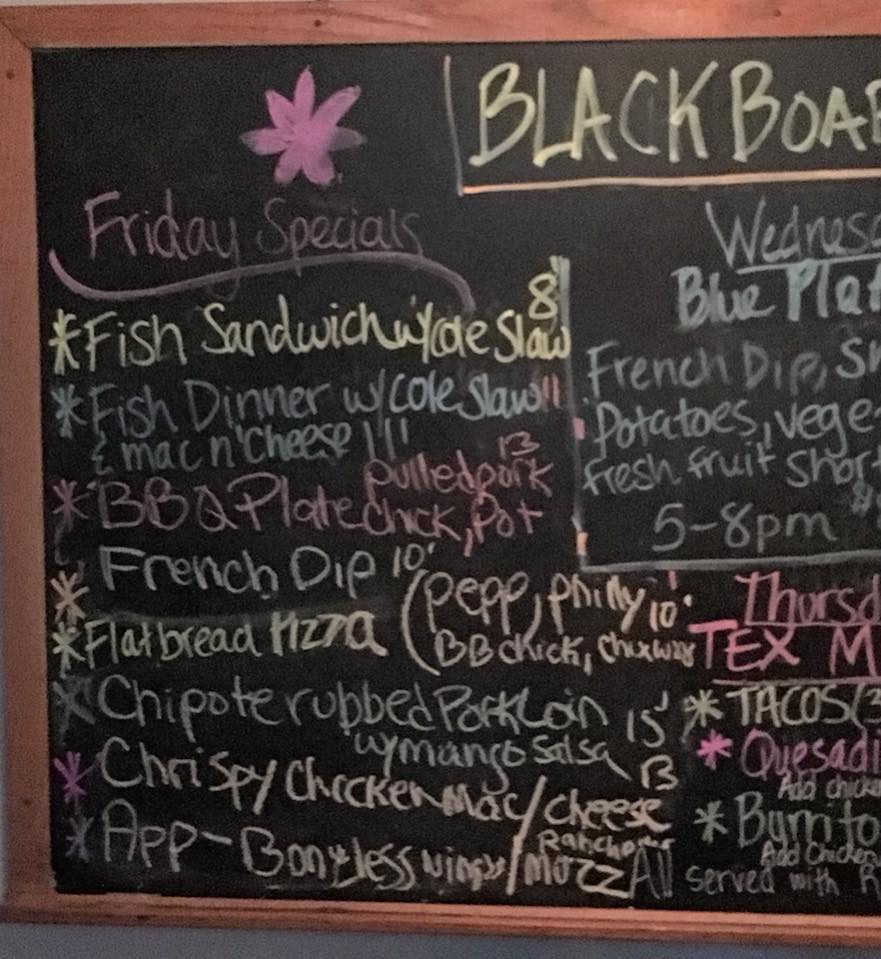 BLACKBOA
Friday Specials
*Fish Sandwich w/cole Slaw 8
*Fish Dinner w/cole Slaw 11
& mac n'cheese
*BBQ Plate pulled pork 13
chick, pot
*French Dip 10
*Flatbread Pizza (pepp, philly 10
BB chick,
*Chipote rubbed Pork Loin 15
w/mango Salsa
*Chrispy Chicken Mac/cheese 13
*App-Boneless wings/Mozz
Wednes
Blue Pla
French Dip, S
Potatoes, vege
fresh fruit Short
5-8pm
Thursd
TEX M
*TACOS(3
*Quesadi
Add chick
*Burrito
Add Chicken
All served with R